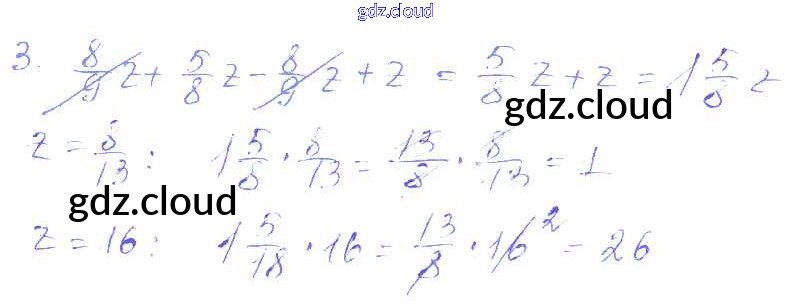 gdz.cloud
3. 8/9 z + 5/8 z - 8/9 z + z = 5/8 z + z = 1 5/8 z
gdz.cloud
z = 8/13 : 1 5/8 · 8/13 = 13/8 · 8/13 = 1
gdz.cloud
z = 16 : 1 5/18 · 16 = 13/8 · 16 2 = 26